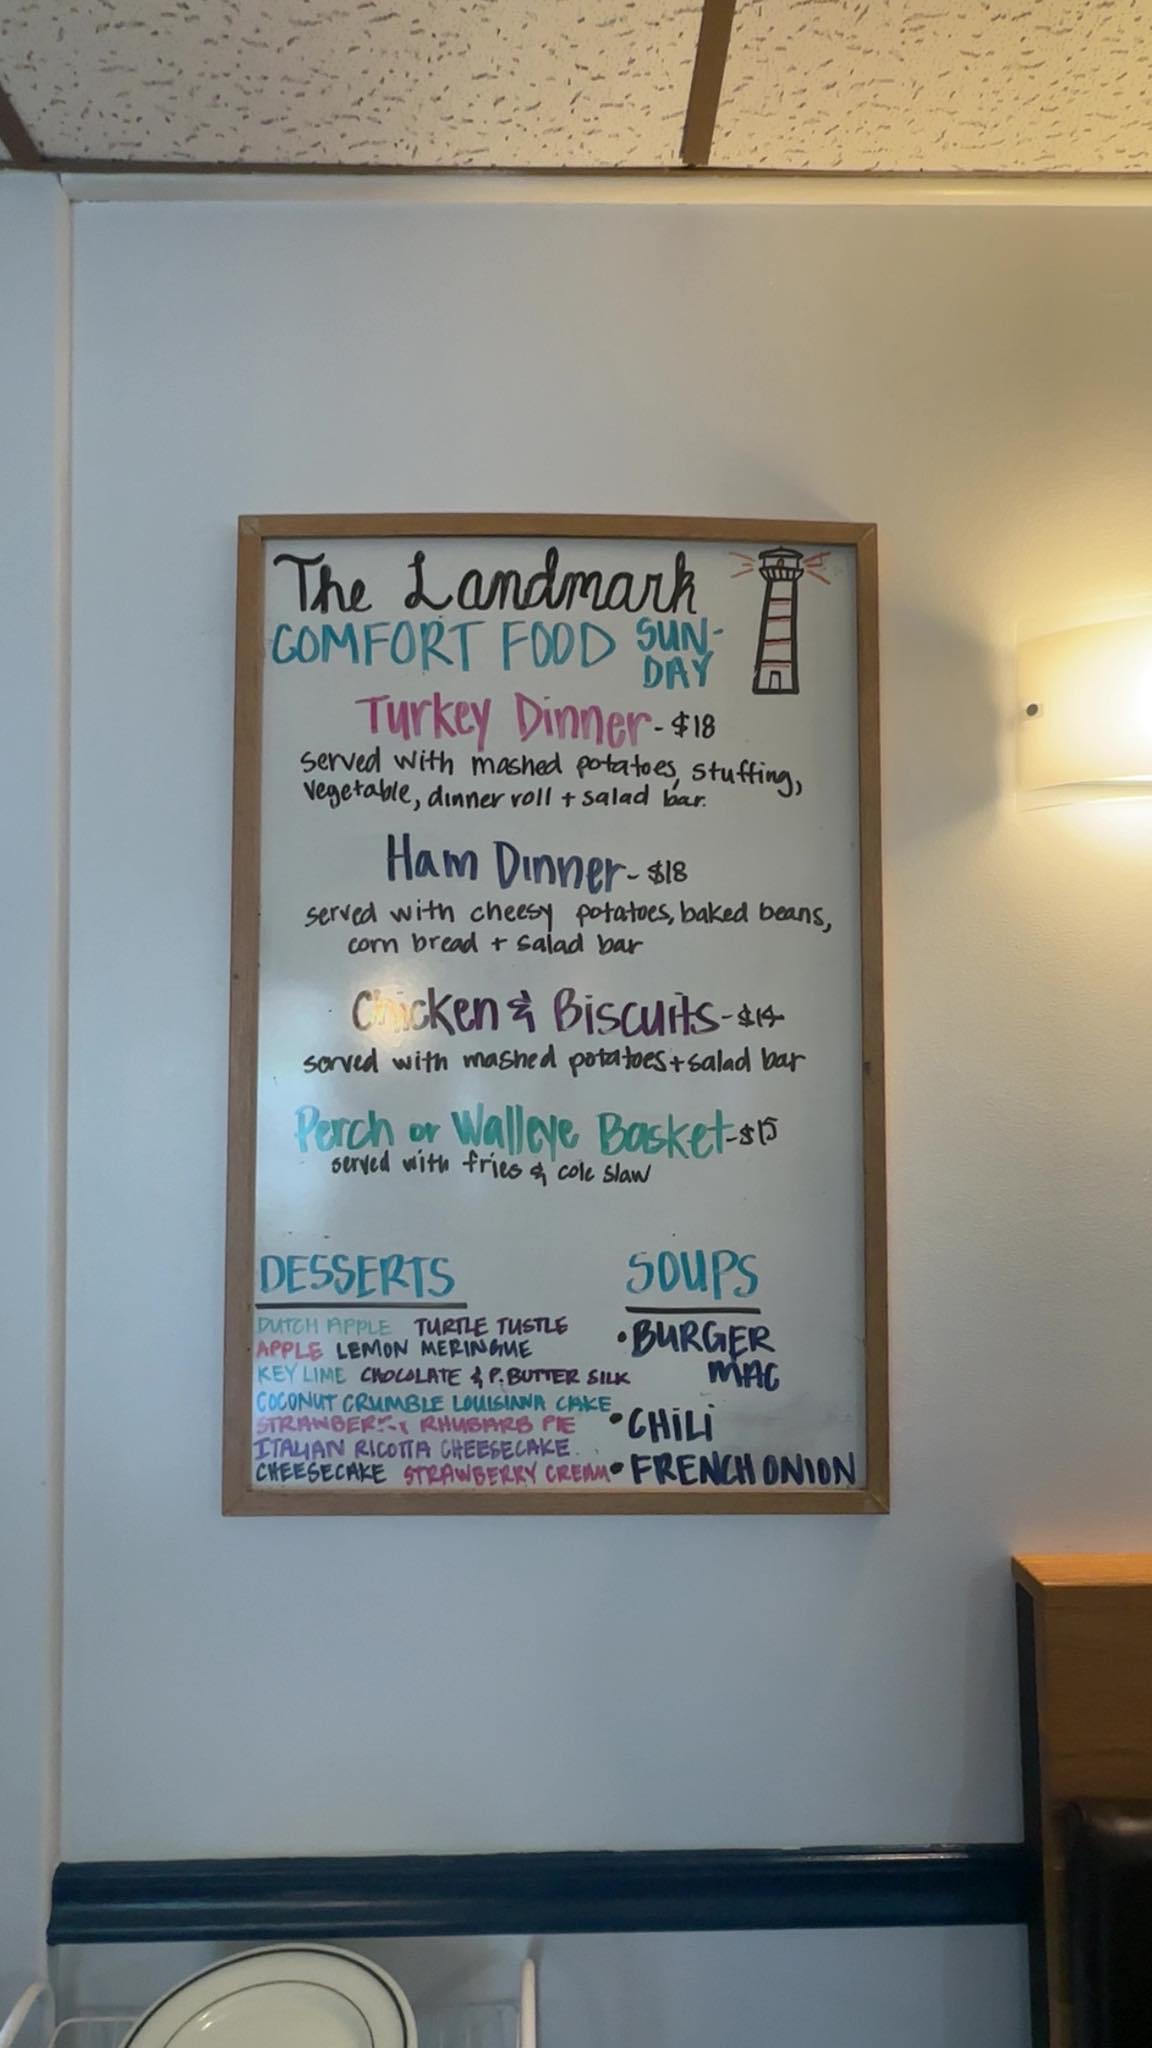 The Landmark
COMFORT FOOD SUN-
DAY
Turkey Dinner - $18
served with mashed potatoes, stuffing,
vegetable, dinner roll + salad bar.
Ham Dinner - $18
served with cheesy potatoes, baked beans,
corn bread + salad bar
Chicken & Biscuits - $14
served with mashed potatoes + salad bar
Perch or Walleye Basket - $15
served with fries & cole slaw
DESSERTS
DUTCH APPLE TURTLE TUSTLE
APPLE LEMON MERINGUE
KEY LIME CHOCOLATE & P. BUTTER SILK
COCONUT CRUMBLE LOUISIANA CAKE
STRAWBERRY RHUBARB PIE
ITALIAN RICOTTA CHEESECAKE
CHEESECAKE STRAWBERRY CREAM
SOUPS
• BURGER
MAC
• CHILI
• FRENCH ONION